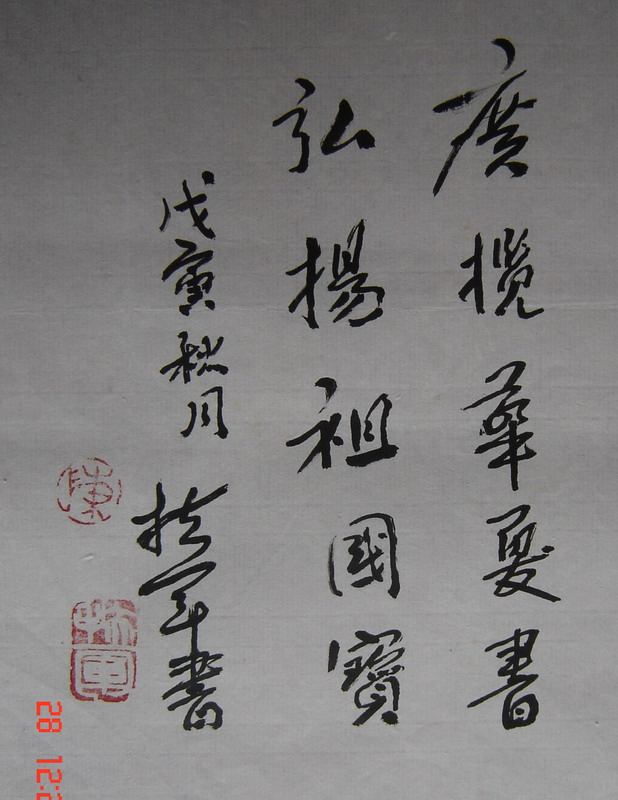 廣攬華夏書
弘揚祖國寶
戊寅秋月
扶軍書
陳
28 12: